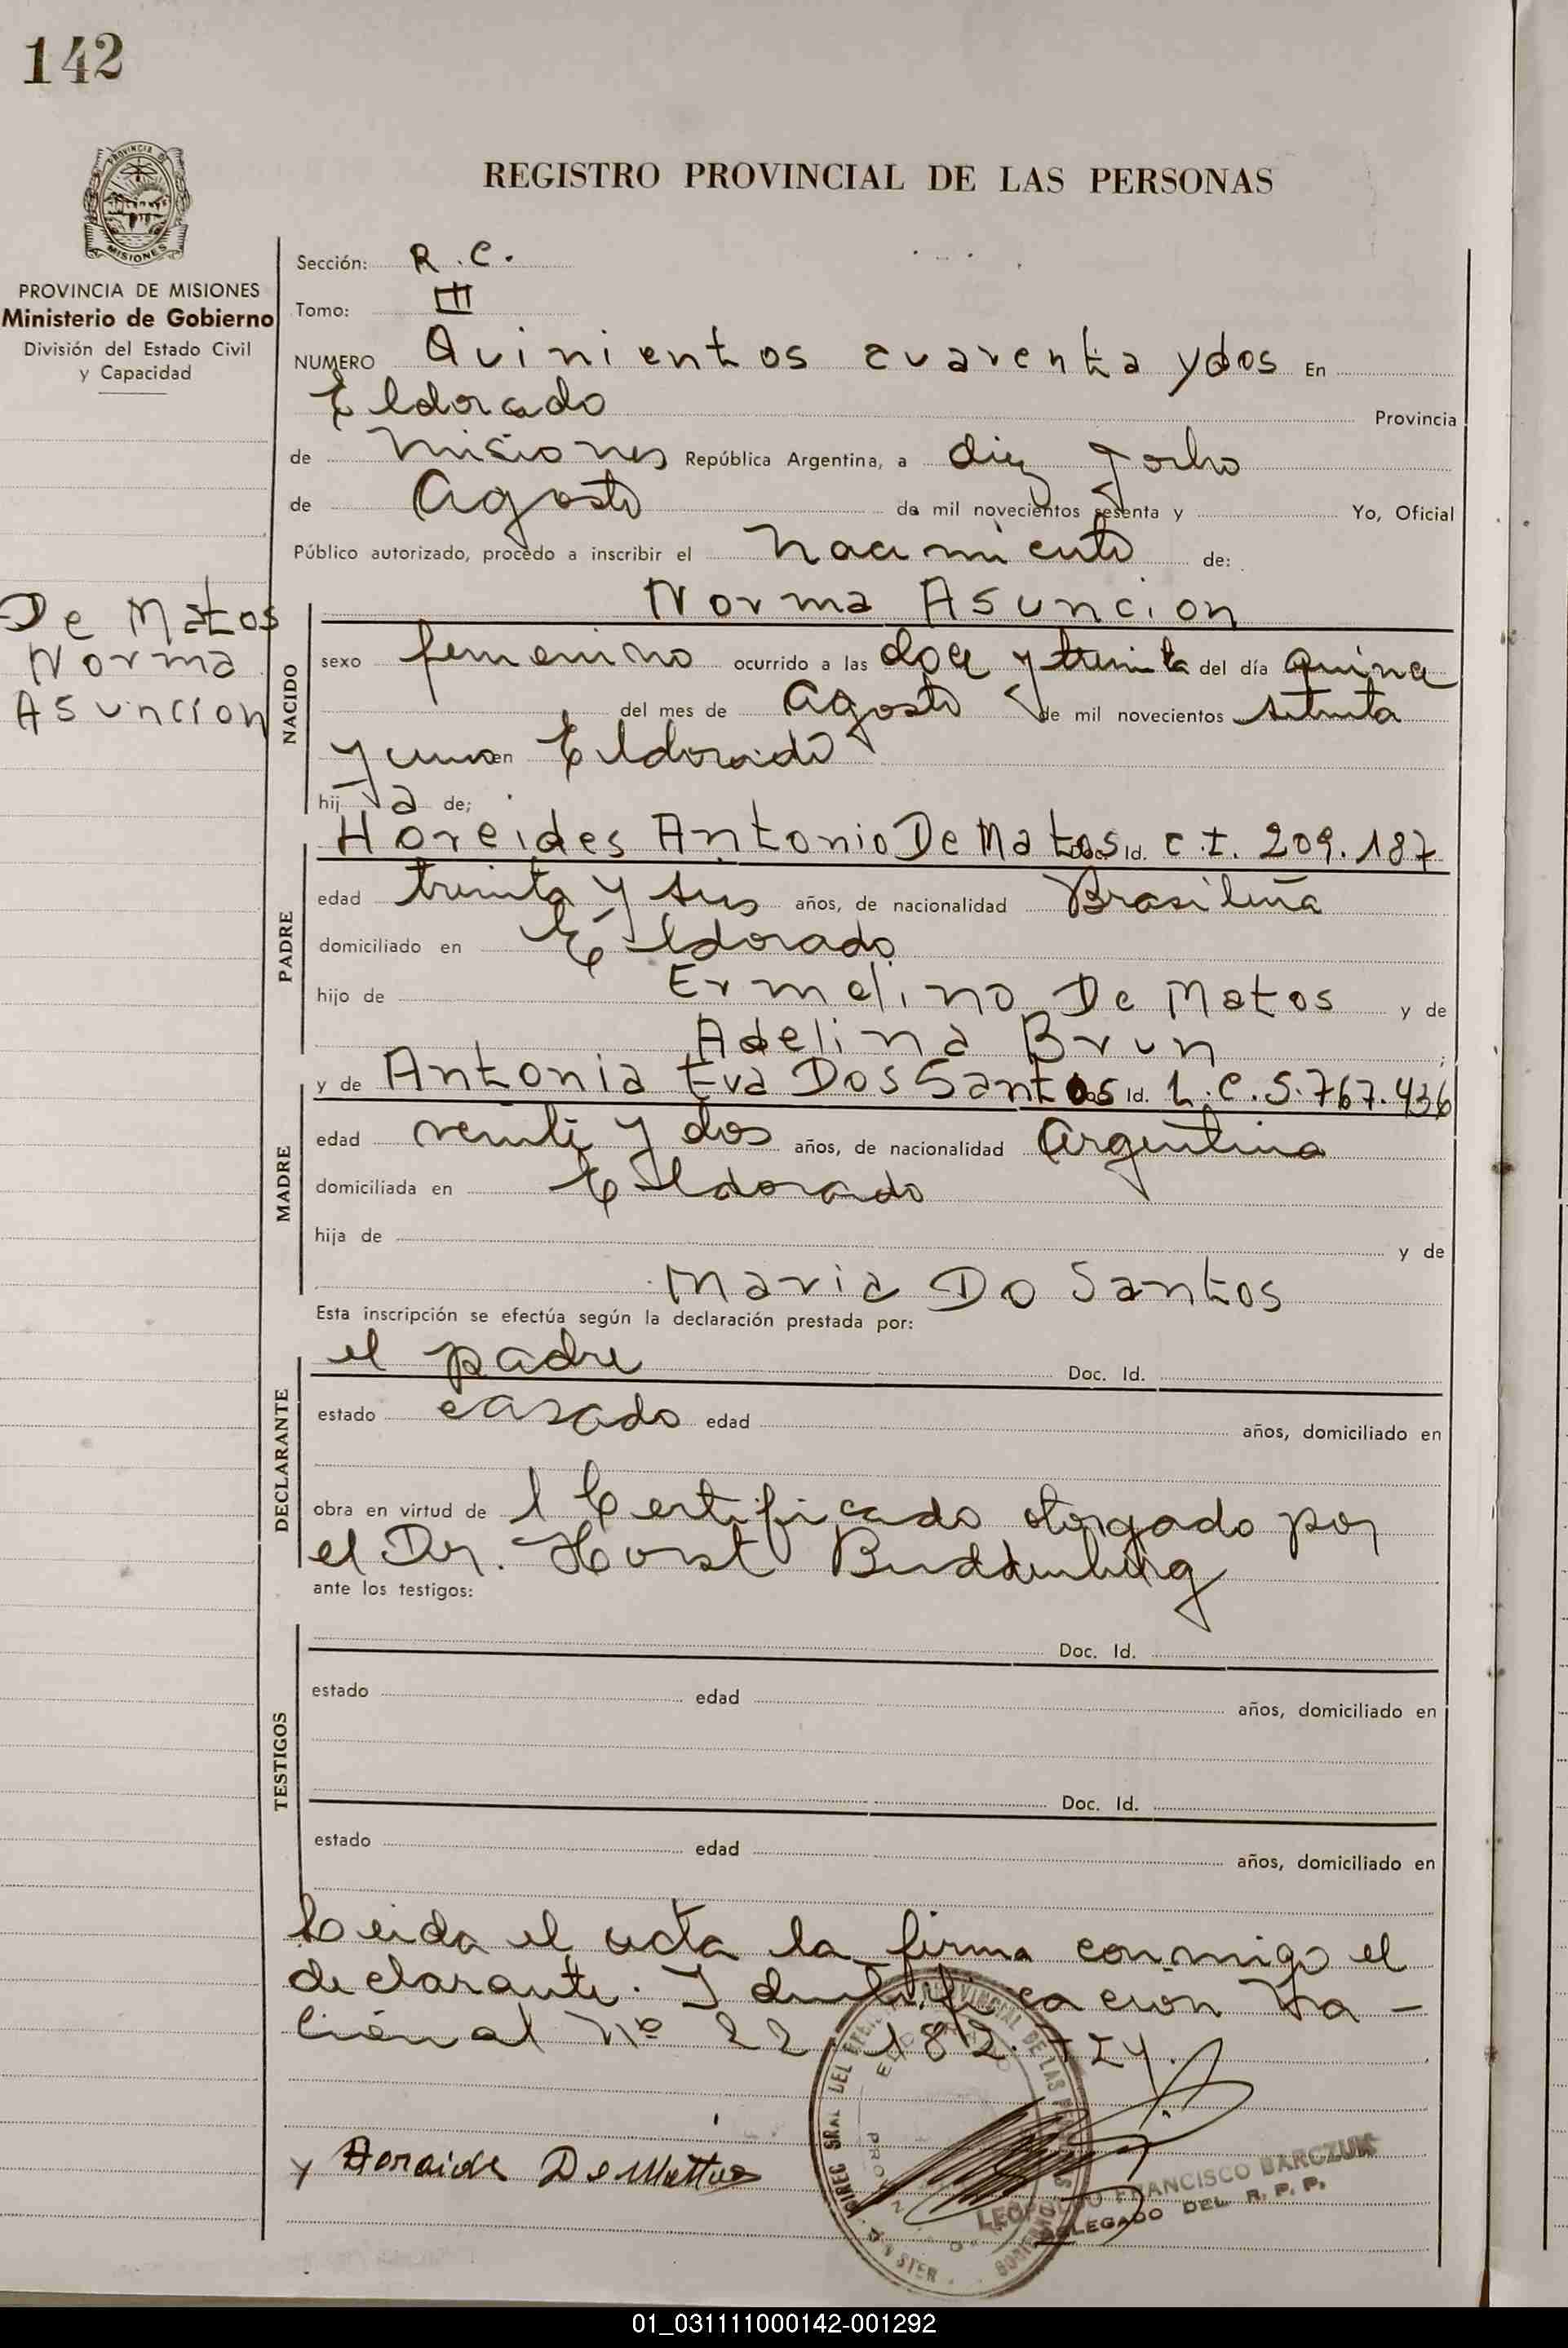 142
PROVINCIA DE
MISIONES
REGISTRO PROVINCIAL DE LAS PERSONAS
PROVINCIA DE MISIONES
Ministerio de Gobierno
División del Estado Civil
y Capacidad
Sección: R.C.
Tomo: III
NUMERO Quinientos cuarenta y dos En
Eldorado Provincia
de Misiones República Argentina, a diez y ocho
de Agosto de mil novecientos sesenta y Yo, Oficial
Público autorizado, procedo a inscribir el nacimiento de:
De Matos
Norma
Asuncion
NACIDO
Norma Asuncion
sexo femenino ocurrido a las doce y treinta del día quince
del mes de Agosto de mil novecientos setenta
y uno en Eldorado
hij a de;
PADRE
Horeides Antonio De Matos Doc. Id. C.I. 209.187
edad treinta y seis años, de nacionalidad Brasileña
domiciliado en Eldorado
hijo de Ermelino De Matos y de
Adelina Brun ;
MADRE
y de Antonia Eva Dos Santos Doc. Id. L.C. 5.767.436
edad veinti y dos años, de nacionalidad Argentina
domiciliada en Eldorado
hija de y de
Maria Do Santos
Esta inscripción se efectúa según la declaración prestada por:
DECLARANTE
el padre Doc. Id.
estado casado edad años, domiciliado en
obra en virtud de l Certificado otorgado por
el Dr. Horst Buddenberg
ante los testigos:
TESTIGOS
Doc. Id.
estado edad años, domiciliado en
Doc. Id.
estado edad años, domiciliado en
Leida el acta la firma conmigo el
declarante. Identificacion Na-
cional Nº 22.182.724.
LEOPOLDO FRANCISCO BARCZUK
DELEGADO DEL R. P. P.
01_031111000142-001292